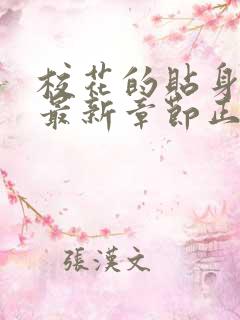 校花的貼身
最新章節正
張漢文